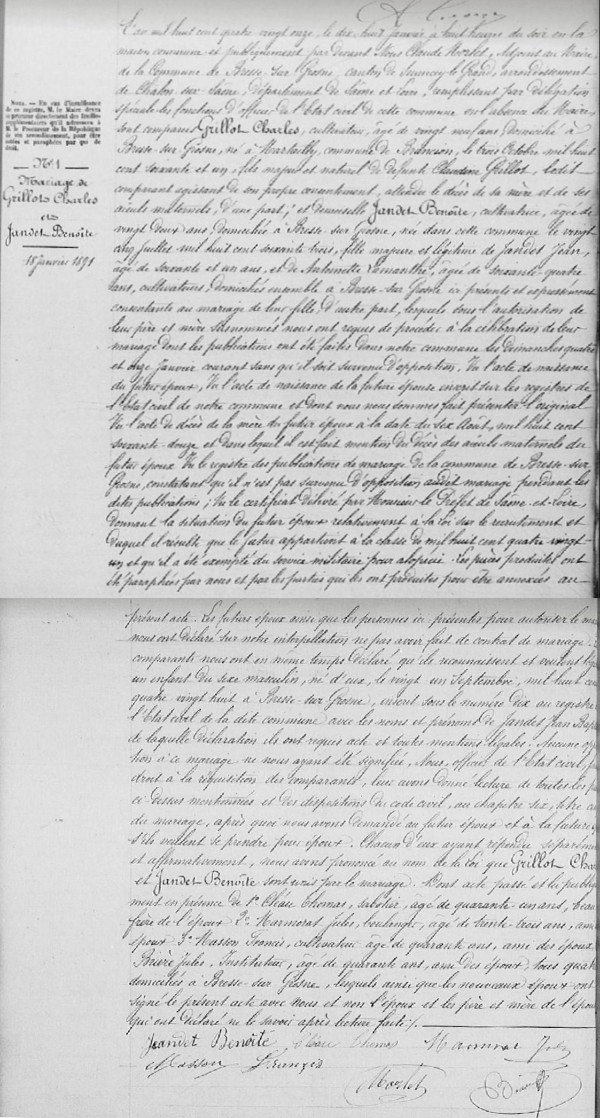 NOTA. — En cas d'insuffisance
de ce registre, M. le Maire devra
M. le Procureur de la République
N° 1
Mariage de
Grillots Charles
et
Jandet Benoîte
18 janvier 1891
L'an mil huit cent quatre vingt onze, le dix huit janvier à huit heures du soir en la
maison commune et publiquement par devant Nous Claude Mortet, Adjoint au Maire
de la Commune de Bresse-sur-Grosne, canton de Sennecey le Grand, arrondissement
de Chalon-sur-Saône, département de Saône et Loire, remplissant par délégation
spéciale les fonctions d'officier de l'Etat civil de cette commune en absence du Maire,
sont comparus Grillot Charles, cultivateur, âgé de vingt neuf ans domicilié à
Bresse-sur-Grosne, né à Martailly, commune de Brancion, le trois Octobre mil huit
cent soixante et un, fils majeur et naturel de défunte Grillot, ledit
comparant agissant de son propre consentement, attendu le décès de sa mère et de ses
aïeuls maternels, d'une part; et demoiselle Jandet Benoîte, cultivatrice, âgée de
vingt deux ans, domiciliée à Bresse-sur-Grosne, née dans cette commune le vingt
cinq juillet mil huit cent soixante trois, fille majeure et légitime de Jandet Jean,
âgé de soixante et un ans, et de Antoinette, âgée de soixante quatre
ans, cultivateurs, domiciliés ensemble à Bresse-sur-Grosne ici présents et expressément
consentants au mariage de leur fille, d'autre part, lesquels sous l'autorisation de
leur père et mère susnommés nous ont requis de procéder à la célébration de leur
mariage dont les publications ont été faites dans notre commune les Dimanches quatre
et onze Janvier courant sans qu'il soit survenu d'opposition. Vu l'acte de naissance
du futur époux, Vu l'acte de naissance de la future épouse inscrit sur les registres de
l'Etat civil de notre commune et dont nous nous sommes fait présenter l'original
Vu l'acte de décès de la mère du futur époux à la date du six Août, mil huit cent
soixante-douze et dans lequel il est fait mention du décès des aïeuls maternels du
futur époux Vu le registre des publications de mariage de la commune de Bresse-sur-
Grosne, constatant qu'il n'est pas survenu d'opposition audit mariage pendant les
dites publications; Vu le certificat délivré par Monsieur le Préfet de Saône-et-Loire,
donnant la situation du futur époux relativement à la loi sur le recrutement et
duquel il résulte que le futur appartient à la classe de mil huit cent quatre vingt
un et qu'il a été exempté du service militaire pour alopécie. Les pièces produites ont
été paraphées par nous et par les parties qui les ont produites pour être annexées au
présent acte. Les futurs époux ainsi que les personnes ici présentes pour autoriser le
nous ont déclaré sur notre interpellation ne pas avoir fait de contrat de mariage.
comparants nous ont en même temps déclaré qu'ils reconnaissent et veulent
un enfant du sexe masculin, né d'eux, le vingt un Septembre, mil huit
quatre vingt huit à Bresse sur Grosne, inscrit sous le numéro dix au registre
l'Etat civil de la dite commune avec les noms et prénoms de Jandet Jean
de laquelle déclaration ils ont requis acte et toutes mentions légales. Aucune
tion à ce mariage ne nous ayant été signifiée, Nous, officier de l'Etat civil,
droit à la réquisition des comparants, leur avons donné lecture de toutes les
ci-dessus mentionnées et des dispositions du code civil, au chapitre six, titre
du mariage, après quoi nous avons demandé au futur époux et à la future
s'ils veulent se prendre pour époux. Chacun d'eux ayant répondu séparément
et affirmativement, nous avons prononcé au nom de la loi que Grillot
et Jandet Benoîte sont unis par le mariage. Dont acte passé et
ment en présence de 1° Cléau Thomas, sabotier, âgé de quarante un ans, beau
frère de l'époux 2° Marmorat Jules, boulanger, âgé de trente trois ans, ami
époux 3° Masson Francis, cultivateur âgé de quarante ans, ami des époux,
Jules, Instituteur, âgé de quarante ans, ami des époux, tous
domiciliés à Bresse-sur-Grosne, lesquels ainsi que les nouveaux époux ont
signé le présent acte avec Nous et non l'époux et les père et mère de
qui ont déclaré ne le savoir après lecture faite.
Jeandet Benoîte Cléau Thomas Marmorat Jules
Masson Francis
Mortet